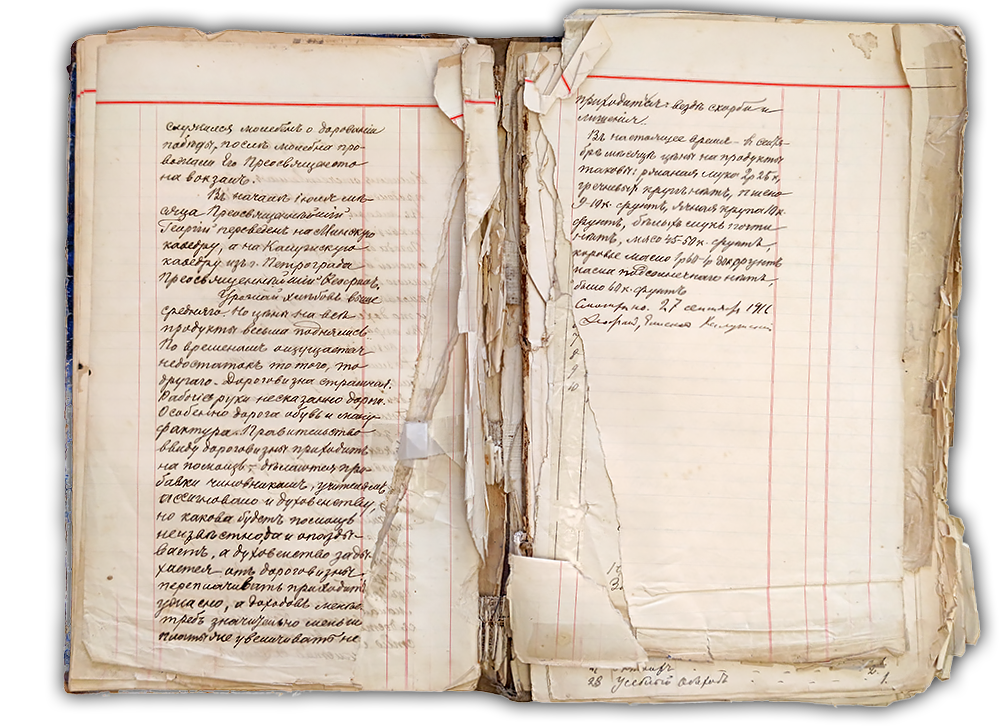 служился молебенъ о дарованіи
побѣды, послѣ молебна про-
вожали Его Преосвященство
на вокзалъ.
Въ началѣ Іюля мѣ-
сяца Преосвященнѣйшій
Георгій переведенъ на Минскую
каѳедру, а на Калужскую
каѳедру изъ г. Петрограда
Преосвященнѣйшій Ѳеофанъ.
Урожай хлѣбовъ выше
средняго. Но цѣны на всѣ
продукты весьма поднялись.
По временамъ ощущается
недостатокъ то того, то
другаго. Дороговизна страшная.
Рабочіе руки несказанно дороги.
Особенно дорога обувь и ману-
фактура. Правительство
ввиду дороговизны приходитъ
на помощь – дѣлаются при-
бавки чиновникамъ, учителямъ,
ассигновано и духовенству,
но какова будетъ помощь
неизвѣстно да и опазды-
ваетъ, а духовенство зады-
хается отъ дороговизны,
переплачивать приходится
ужасно, а доходовъ меньше
требъ значительно меньше
платы не увеличиваютъ не
приходится: вездѣ скорби и
лишенія.
Въ настоящее время – въ сентя-
брѣ мѣсяцѣ цѣны на продукты
таковы: ржаная мука 2р 25 к,
гречневыхъ крупъ нѣтъ, пшено
к. фунтъ, ячная крупа к.
фунтъ, бѣлыхъ мукъ почти
нѣтъ, мясо 45-50 к. фунтъ,
коровье масло фунтъ
масла подсолнечнаго нѣтъ,
было 60 к. фунтъ.
Смотрѣно. 27 сентября 1916
Ѳеофанъ, Епископъ Калужскій
7
8
9
10
28